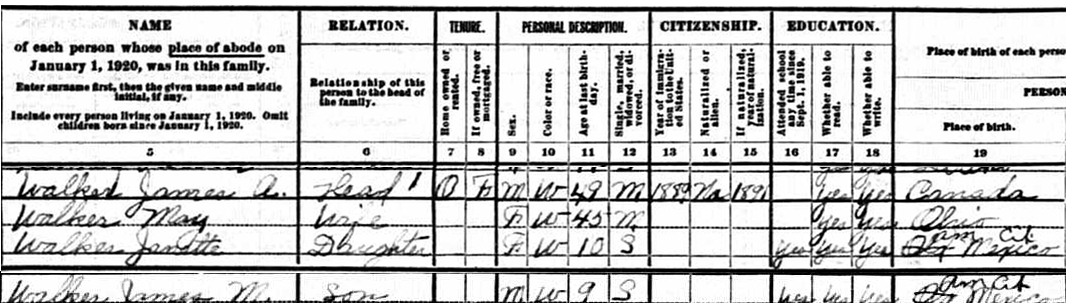 NAME
of each person whose place of abode on
January 1, 1920, was in this family.
Enter surname first, then the given name and middle
initial, if any.
Include every person living on January 1, 1920. Omit
children born since January 1, 1920.
5
RELATION.
Relationship of this
person to the head of
the family.
6
TENURE.
Home owned or
rented.
If owned, free or
mortgaged.
7 8
PERSONAL DESCRIPTION.
Sex.
Color or race.
Age at last birth-
day.
Single, married,
widowed, or di-
vorced.
9 10 11 12
CITIZENSHIP.
Year of immigra-
tion to the Unit-
ed States.
Naturalized or
alien.
If naturalized,
year of natural-
ization.
13 14 15
EDUCATION.
Attended school
any time since
Sept. 1, 1919.
Whether able to
read.
Whether able to
write.
16 17 18
Place of birth of each perso
PERSON
Place of birth.
19
Walker James A. Head 1 O F M W 49 M 1889 Na 1891 Yes Yes Canada
Walker May Wife F W 45 M Yes Yes Ohio
Walker Janette Daughter F W 10 S Yes Yes Yes Mexico Am Cit
Walker James M. Son M W 9 S Yes Yes Yes Mexico Am Cit